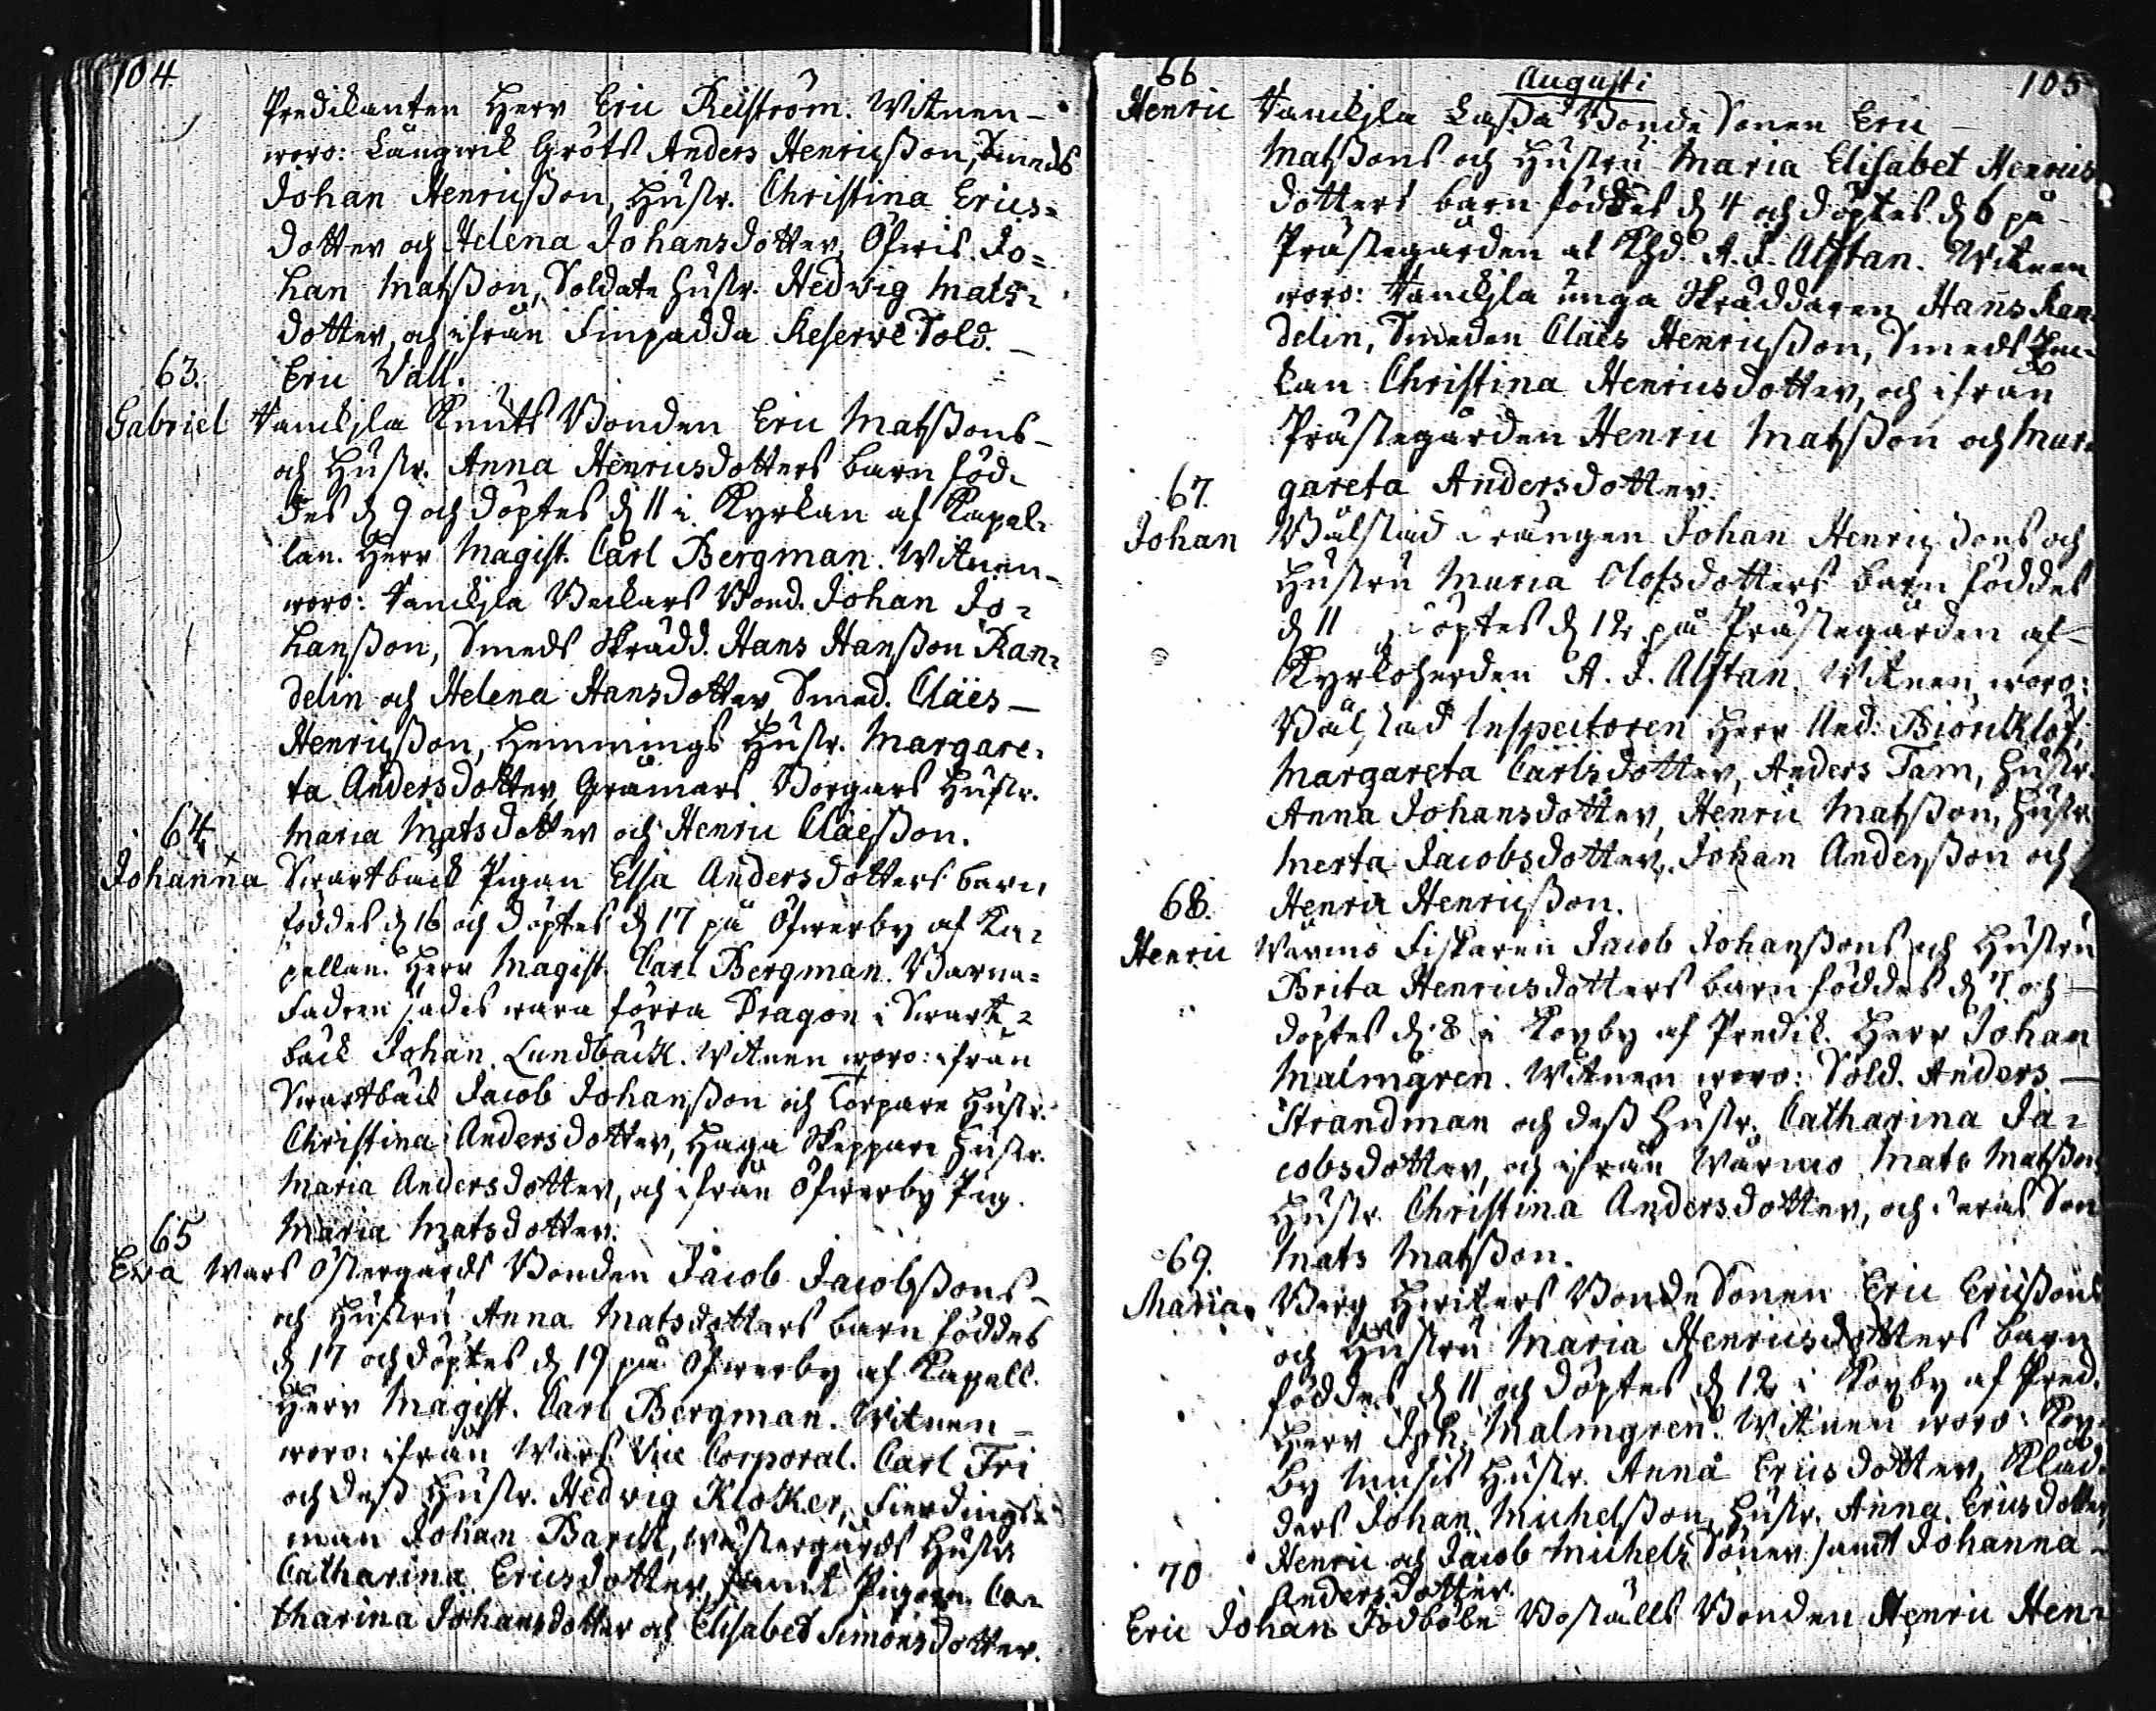 104.
Predikanten Herr Eric Relström. Witnen
woro: Långwik Gröts Anders Henricsson, Smeds
Johan Henricsson, Hustr. Christina Erics-
dotter och Helena Johansdotter, Öfwis. Jo-
han Matsson, Soldate Hustr. Hedvig Mats-
dotter, och ifrån Finpadda Reserve Sold.
63. Eric Wall.
Gabriel Tanskjla Knuts Bonden Eric Matssons
och Hustr. Anna Henricsdotters barn föd-
des d. 9 och döptes d. 11 i Kyrkan af Kapel-
lan. Herr Magist. Carl Bergman. Witnen
woro: Tanskjla Beckars Bond. Johan Jo-
hansson, Smeds Skrädd. Hans Hansson Ran-
delin och Helena Hansdotter, Smed. Claës
Henricsson, Hemmings Hustr. Margare-
ta Andersdotter, Gramars Borgars Hustr.
64. Maria Matsdotter och Henric Claësson.
Johanna Swartbäck Pigan Elsa Andersdotters barn
föddes d. 16 och döptes d. 17 på Öfwerby af Ka-
pellan. Herr Magist. Carl Bergman. Barna-
fadren sades wara förra Dragon i Swart-
bäck Johan Lundbäck. Witnen woro: ifrån
Swartbäck Jacob Johansson och Torpare Hustr.
Christina Andersdotter, Haga Skeppare Hustr.
Maria Andersdotter, och ifrån Öfwerby Pig.
65 Maria Matsdotter.
Ewa Wars Östergårds Bonden Jacob Jacobssons
och Hustru Anna Matsdotters barn föddes
d. 17 och döptes d. 19 på Öfwerby af Kapell.
Herr Magist. Carl Bergman. Witnen
woro: ifrån Wars Vice Corporal. Carl Fri
och dess Hustr. Hedvig Klocker, Fierdings-
man Johan Barck, Westergårds Hustr.
Catharina Ericsdotter, samt Pigorn. Ca-
tharina Johansdotter och Elisabet Simonsdotter.
66 Augusti 105
Henric Tanskjla Lassa Bonde Sonen Eric
Matssons och Hustru Maria Elisabet Henrics
dotters barn föddes d. 4 och döptes d. 6 på
Prästegården af Khd. A. J. Alftan. Witnen
woro: Tanskjla unga Skräddaren Hans Ran-
delin, Smeden Claës Henricsson, Smeds
Christina Henricsdotter, och ifrån
Prästegården Henric Matsson och Mar-
67. gareta Andersdotter.
Johan Bålstad drängen Johan Henricsons och
Hustru Maria Olofsdotters barn föddes
d. 11 döptes d. 12 på Prästegården af
Kyrkoherden A. J. Alftan. Witnen woro:
Bålstad Inspectoren Herr And: Biörklöf,
Margareta Carlsdotter, Anders Tam, Hustr.
Anna Johansdotter, Henric Matsson, Hustr.
Merta Jacobsdotter, Johan Andersson och
68. Henric Henricsson.
Henric Wärmö Fiskaren Jacob Johanssons och Hustru
Brita Henricsdotters barn föddes d. 7 och
döptes d. 8 i Koxby af Predik. Herr Johan
Malmgren. Witnen woro: Sold. Anders
Strandman och dess Hustr. Catharina Ja-
cobsdotter, och ifrån Wärmö Mats Matsson
Hustr. Christina Andersdotter, och deras Son
69. Mats Matsson.
Maria Berg Bonde Sonen Eric Ericssons
och Hustru Maria Henricsdotters barn
föddes d. 11 och döptes d. 12 i Koxby af Pred.
Herr Joh. Malmgren. Witnen woro: Kox-
by Hustr. Anna Ericsdotter, Kläd-
ders Johan Michelsson, Hustr. Anna Ericsdotter,
70 Henric och Jacob Michels Söner samt Johanna
Andersdotter.
Eric Johan Jodböle Boställs Bonden Henric Hen-